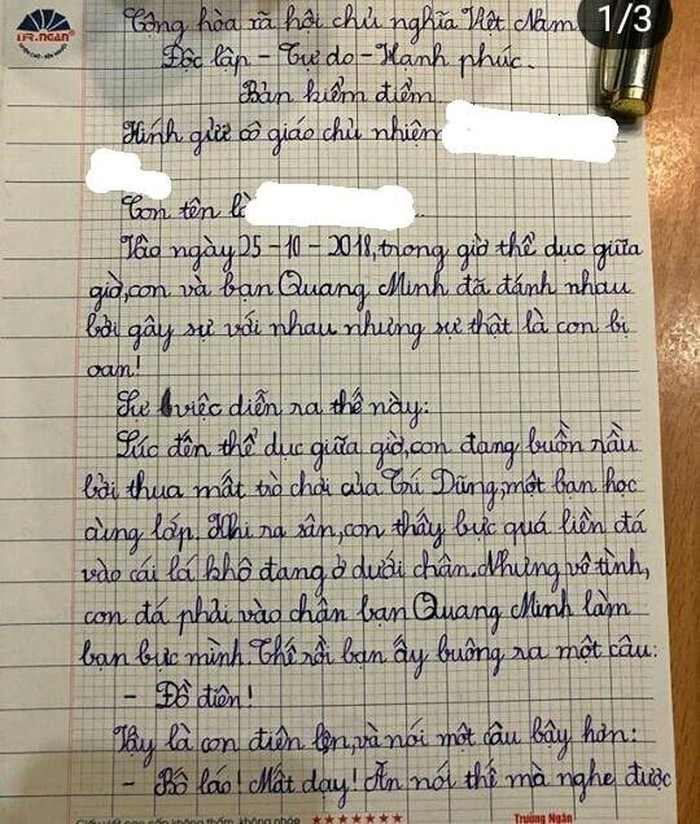 DR.NGAN®
1/3
Cộng hòa xã hội chủ nghĩa Việt Nam
Độc lập - Tự do - Hạnh phúc.
Bản kiểm điểm
Kính gửi cô giáo chủ nhiệm
Con tên là
Vào ngày 25-10-2018, trong giờ thể dục giữa
giờ, con và bạn Quang Minh đã đánh nhau
bởi gây sự với nhau nhưng sự thật là con bị
oan!
Sự việc diễn ra thế này:
Lúc đến thể dục giữa giờ, con đang buồn rầu
bởi thua mất trò chơi của Trí Dũng, một bạn học
cùng lớp. Khi ra sân, con thấy bực quá liền đá
vào cái lá khô đang ở dưới chân. Nhưng vô tình,
con đá phải vào chân bạn Quang Minh làm
bạn bực mình. Thế rồi bạn ấy buông ra một câu:
- Đồ điên!
Vậy là con điên lên, và nói một câu bậy hơn:
- Bố láo! Mất dạy! Ăn nói thế mà nghe được
Trường Ngân